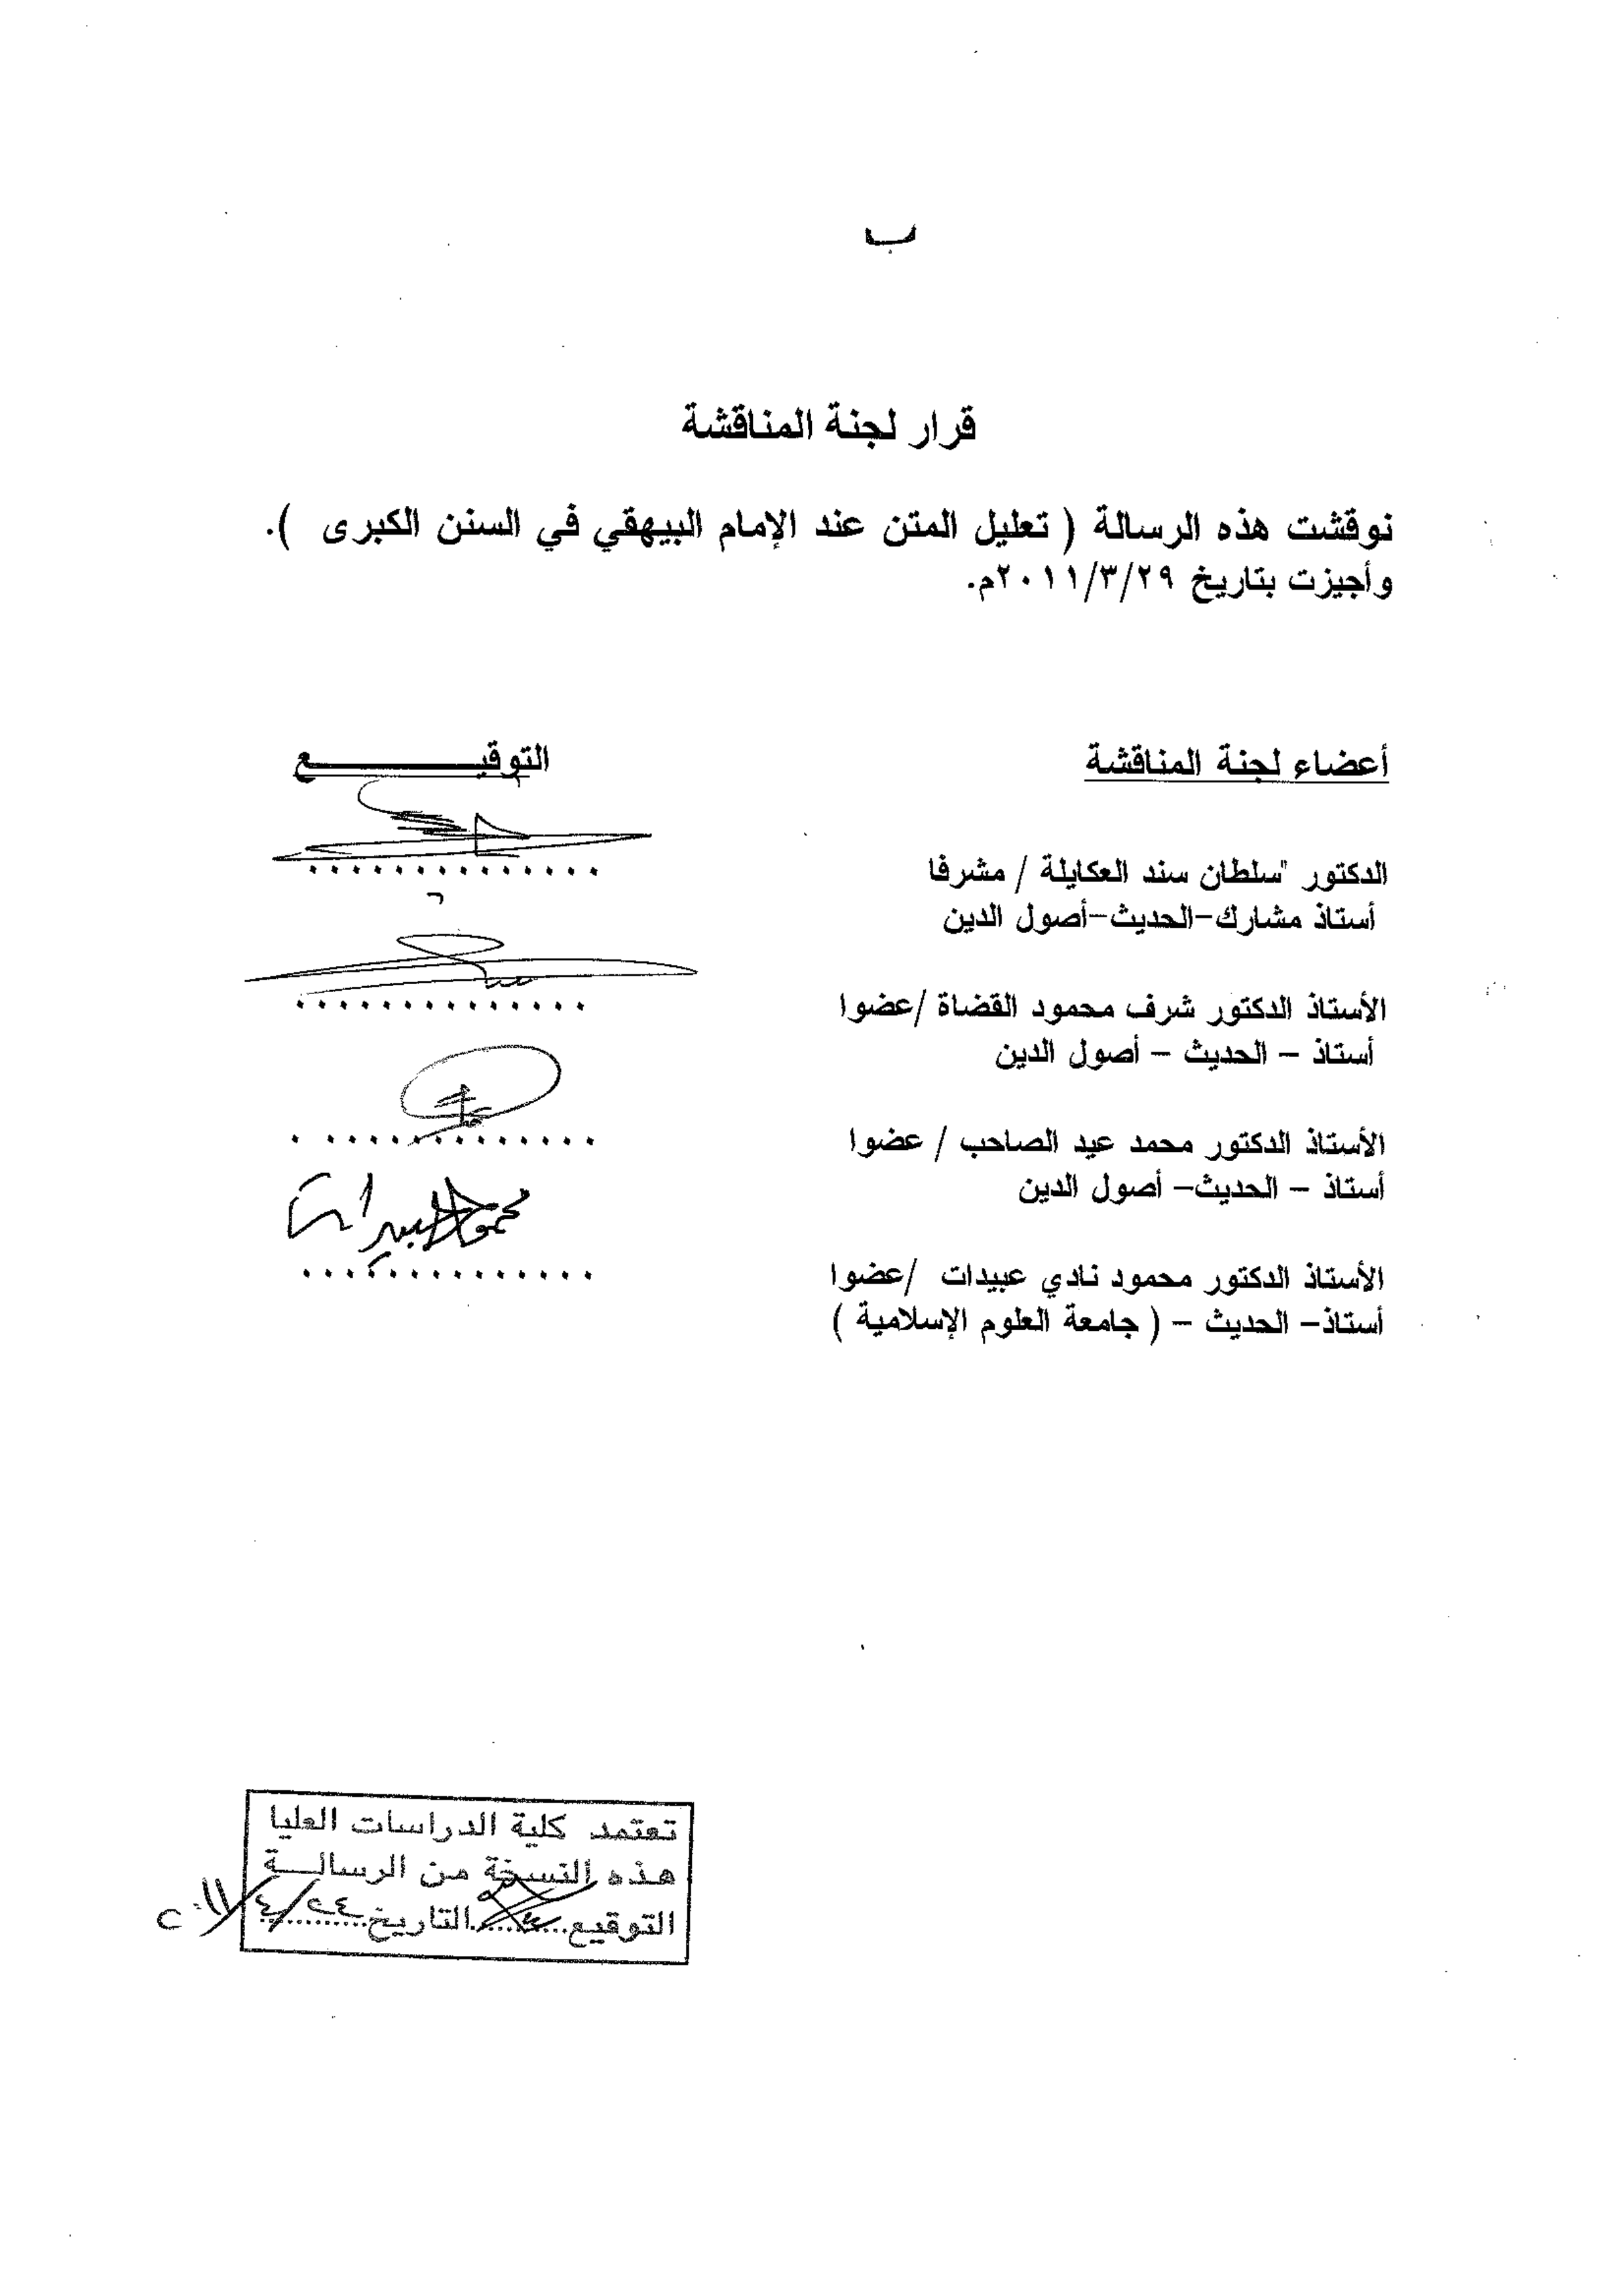 ب
قرار لجنة المناقشة
نوقشت هذه الرسالة ( تعليل المتن عند الإمام البيهقي في السنن الكبرى ).
وأجيزت بتاريخ ٢٠١١/٣/٢٩م.
أعضاء لجنة المناقشة التوقيـــــــــــع
الدكتور "سلطان سند العكايلة / مشرفا ..............
أستاذ مشارك-الحديث-أصول الدين
الأستاذ الدكتور شرف محمود القضاة /عضوا ..............
أستاذ – الحديث – أصول الدين
الأستاذ الدكتور محمد عيد الصاحب / عضوا ..............
أستاذ – الحديث– أصول الدين
الأستاذ الدكتور محمود نادي عبيدات /عضوا ..............
أستاذ– الحديث – ( جامعة العلوم الإسلامية )
تعتمد كلية الدراسات العليا
هذه النسخة من الرسالـــة
التوقيع..........التاريخ ٢٤/٤/٢٠١١